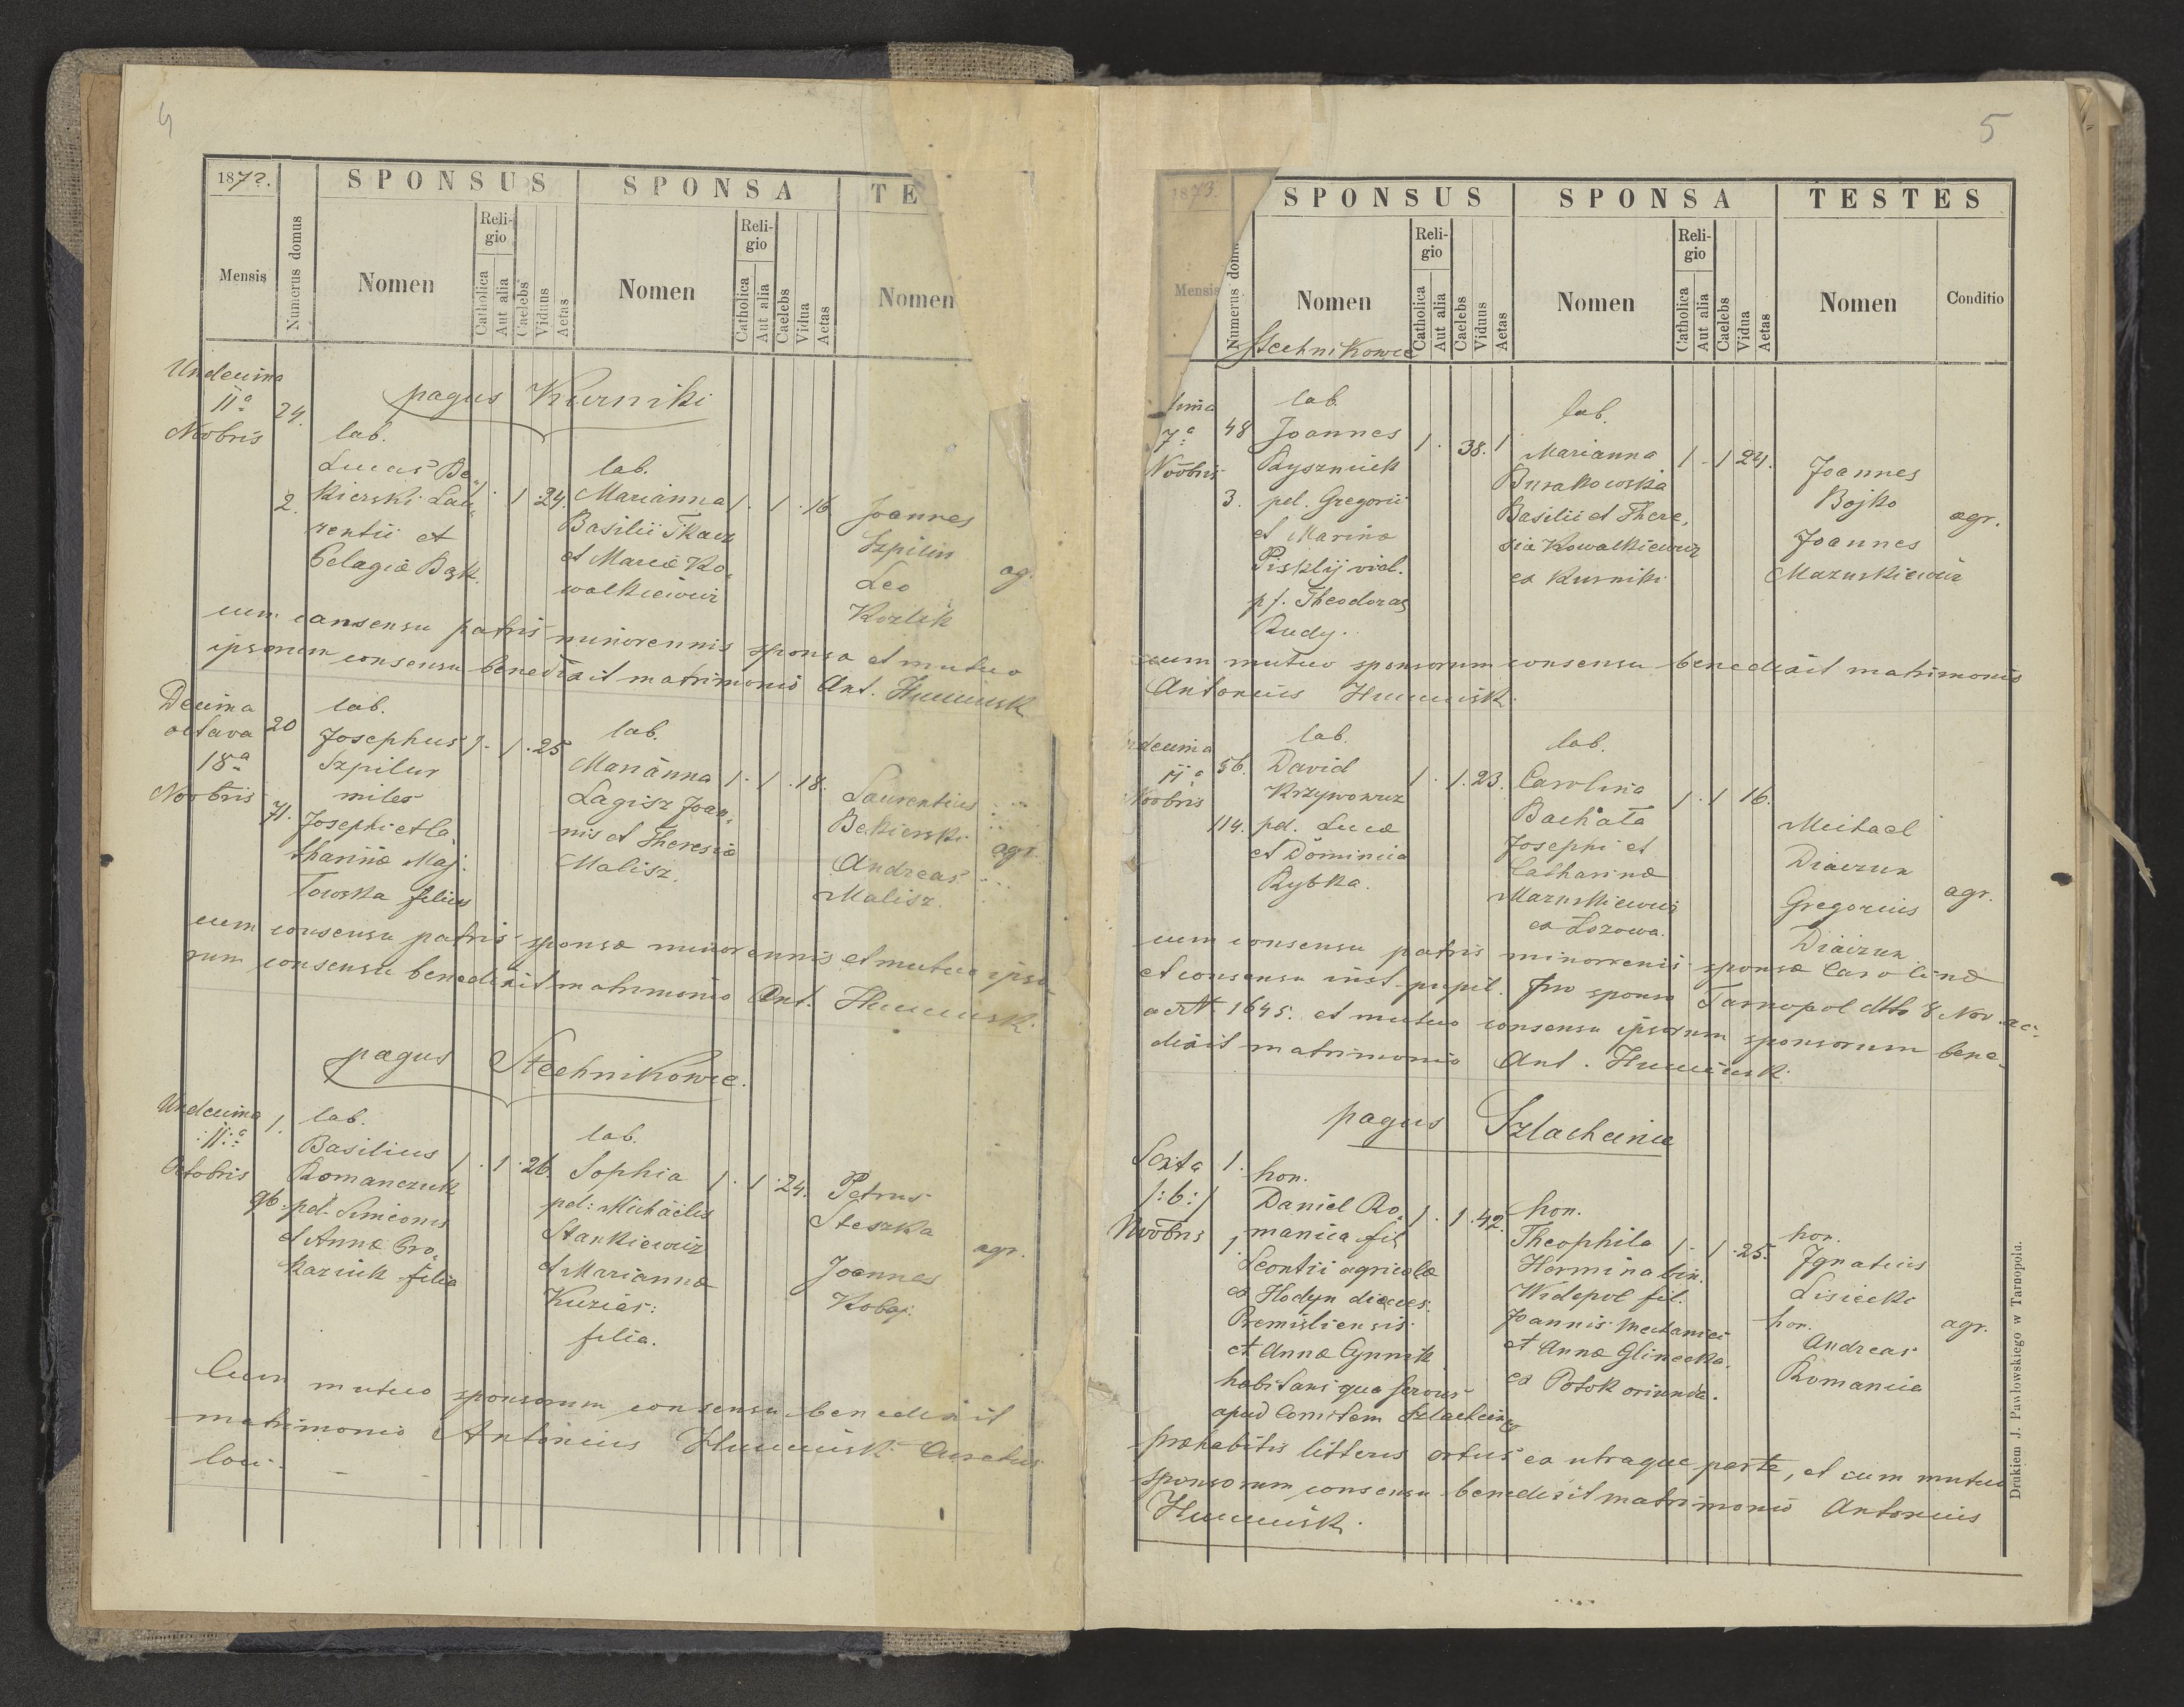 4
1872.
SPONSUS
SPONSA
TE
Mensis
Numerus domus
Nomen
Religio
Catholica
Aut alia
Caelebs
Viduus
Aetas
Nomen
Religio
Catholica
Aut alia
Caelebs
Vidua
Aetas
Nomen
pagus Kurniki
Undecima
11ª
Novbris
24.
2.
lab.
Lucas Be
kierski Lau
rentii et
Pelagiæ Bąk.
1 . 1 . 24.
lab.
Marianna
Basilii Tkacz
et Mariæ Ko
walkiewicz
1 . 1 . 16.
Joannes
Szpilur
Leo
Kozlik
ag.
cum consensu patris minorennis sponsa et mutuo
ipsorum consensu benedixit matrimonio Ant.
Decima
octava
18ª
Novbris
20
71.
lab.
Josephus
Szpilur
miles
Josephi et Ca
tharinæ Maj
towska filius
1 . 1 . 25
lab.
Marianna
Lagisz Joan
nis et Theresiæ
Malisz.
1 . 1 . 18.
Laurentius
Bekierski
Andreas
Malisz.
agr.
cum consensu patris sponsæ minorennis et mutuo ipso
rum consensu benedixit matrimonio Ant.
pagus Stechnikowce.
Undecima
11ª
Octobris
1.
96.
lab.
Basilius
Romanczuk
pd. Simeonis
et Annæ Pro
kazuik filio
1 . 1 . 26.
lab.
Sophia
pd: Michaelis
Stankiewicz
et Mariannæ
filia.
1 . 1 . 24.
Petrus
Steszka
Joannes
Kobaj.
agr.
Cum mutuo sponsorum consensu benedixit
matrimonio Antonius Curatus
loci.
5
1873.
SPONSUS
SPONSA
TESTES
Mensis
Numerus domu
Nomen
Religio
Catholica
Aut alia
Caelebs
Viduus
Aetas
Nomen
Religio
Catholica
Aut alia
Caelebs
Vidua
Aetas
Nomen
Conditio
Stechnikowce
7ª
Novbris
48
3.
lab.
Joannes
Ryszniuk
pd. Gregorii
et Marina
Pisklij vid.
pf. Theodoras
Rudy.
1 . 38. 1
lab.
Marianna
Burakowska
Basilii et There
sia Kowalkiewicz
ex Kurniki
1 . 1 24.
Joannes
Bojko
Joannes
Mazurkiewicz
agr.
cum mutuo sponsorum consensu benedixit matrimonio
Antonius
ndecima
11ª
Novbris
56.
114.
lab.
David
Krzywonos
pd. Lucæ
et Dominica
Rybka.
1 . 1 . 23.
lab.
Carolina
Bachata
Josephi et
Catharinæ
Mazurkiewicz
ex Lozowa.
1 . 1 16.
Michael
Diaczun
Gregorius
Diaczun
agr.
cum consensu patris minorennis sponsæ Carolinæ
et consensu inst. pupil. pro sponso Tarnopol dtto 8 Nov. ac.
ad N. 1645. et mutuo consensu ipsorum sponsorum bene
dixit matrimonio Ant.
pagus Szlachcince
Sexta
/:6:/
Novbris
1.
hon.
Daniel Ro
manica fil.
Leontii agricolæ
ex Hodyn dieces.
Premisliensis
et Annæ Cynnik
habitans qua servus
apud Comitem Szlachcince
1 . 1 . 42.
hon.
Theophila
Hermina bin.
Widepol fil.
Joannis mechanici
et Annæ Glinecka
ex Potok oriunda.
1 . 1 . 25.
hon.
Ignatius
Lisiecki
hon.
Andreas
Romanica
agr.
præhabitis litteris ortus ex utraque parte, et cum mutuo
sponsorum consensu benedixit matrimonio Antonius
Drukiem J. Pawłowskiego w Tarnopolu.